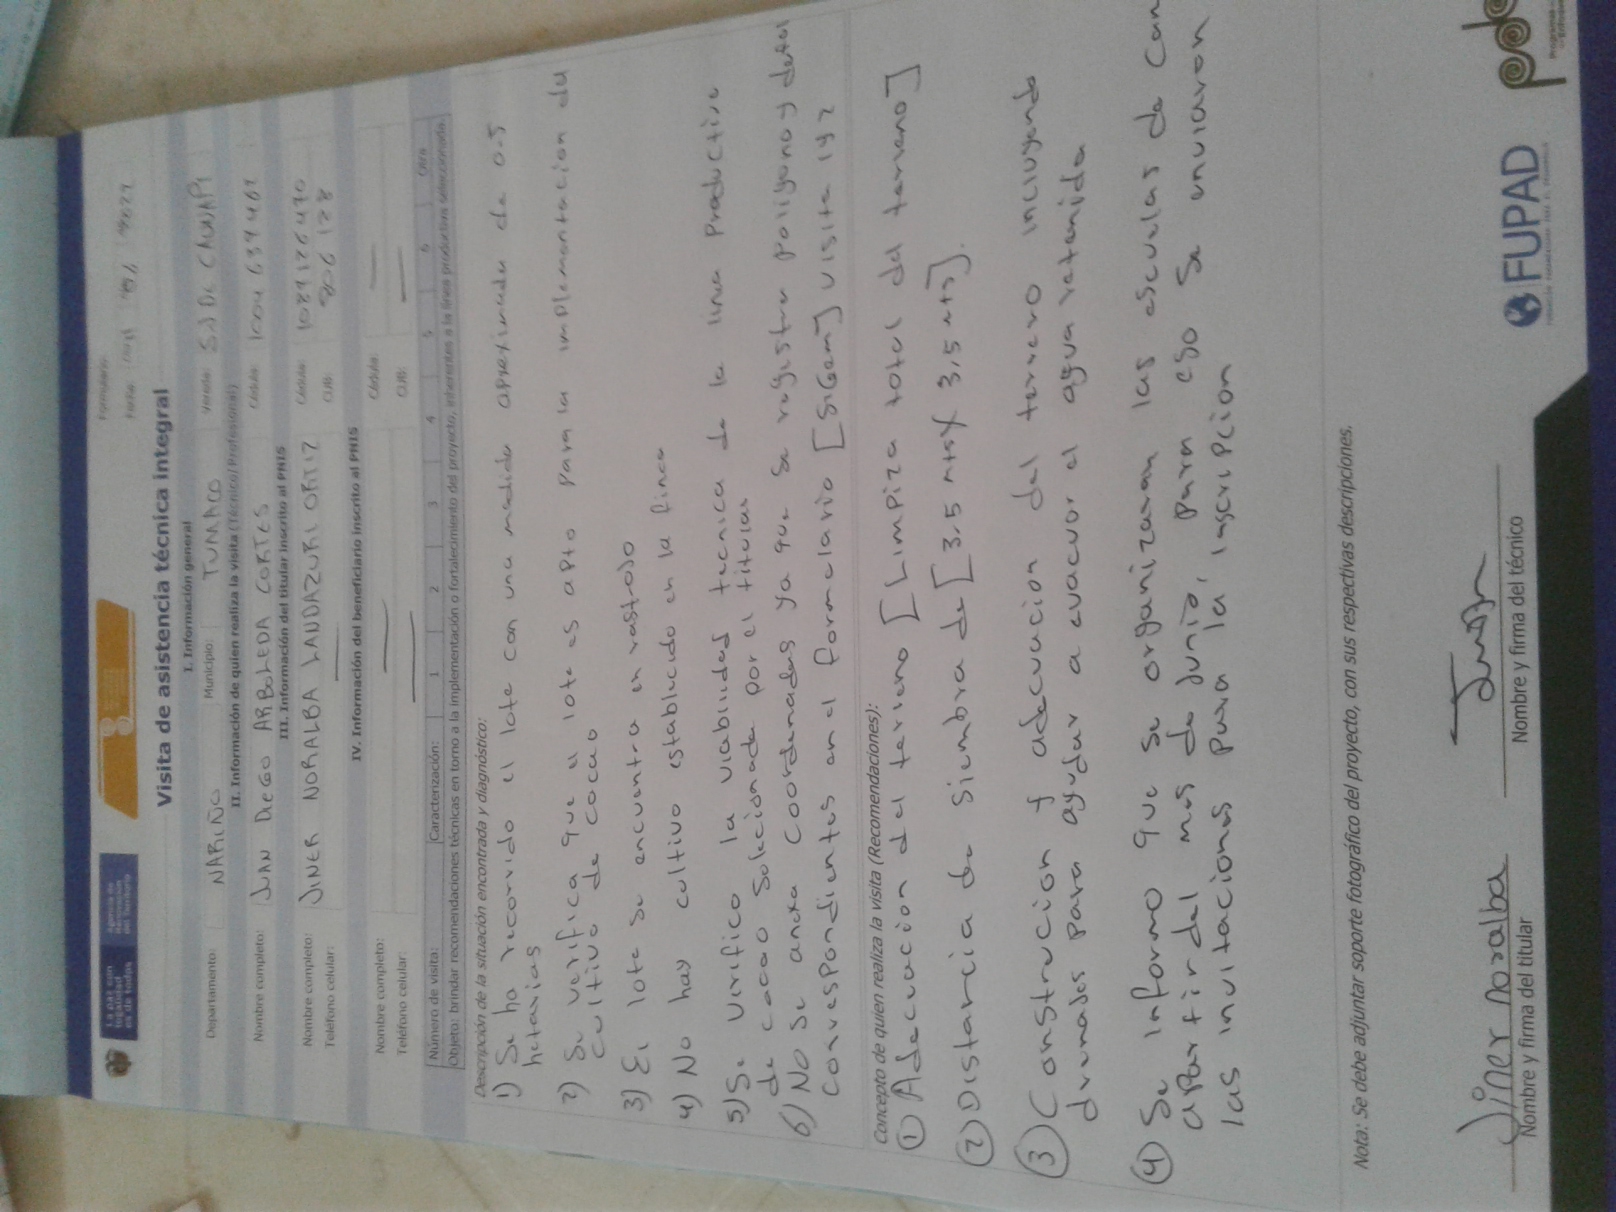 La paz con legalidad es de todos
Agencia de Renovación del Territorio
Formulario:
Fecha:
Visita de asistencia técnica integral
I. Información general
Departamento: NARIÑO Municipio: TUMACO Vereda: SJ DE CAUNAPI
II. Información de quien realiza la visita (Técnico/Profesional)
Nombre completo: JUAN DIEGO ARBOLEDA CORTES Cédula: 1004639469
III. Información del titular inscrito al PNIS
Nombre completo: JINER NORALBA LANDAZURI ORTIZ Cédula: 1089126470
Teléfono celular: — CUB: 806128
IV. Información del beneficiario inscrito al PNIS
Nombre completo: — Cédula: —
Teléfono celular: — CUB: —
Número de visita: Caracterización: 1 2 3 4 5 6 Otra
Objeto: brindar recomendaciones técnicas en torno a la implementación o fortalecimiento del proyecto, inherentes a la línea productiva seleccionada.
Descripción de la situación encontrada y diagnóstico:
1) Se ha recorrido el lote con una medida aproximada de 0.5
hetarias
2) Se verifica que el lote es apto para la implementacion del
cultivo de cacao
3) El lote se encuentra en rastrojo
4) No hay cultivo establecido en la finca
5) Se verifico la viabilidad tecnica de la linea Productiva
de cacao seleccionada por el titular
6) No se anexa coordenadas ya que se registra poligono y
correspondientes en el formulario [SiGem] visita 1 y 2
Concepto de quien realiza la visita (Recomendaciones):
① Adecuacion del terreno [Limpiza total del terreno]
② Distancia de siembra de [3.5 mts X 3,5 mts].
③ Construcion y adecuacion del terreno incluyendo
drenajes para ayudar a evacuar el agua retenida
④ Se informo que se organizaran las escuelas de cam
apartir del mes de junio, para eso se enviaron
las invitaciones para la inscripcion
Nota: Se debe adjuntar soporte fotográfico del proyecto, con sus respectivas descripciones.
Jiner noralba
Nombre y firma del titular
Nombre y firma del técnico
FUPAD